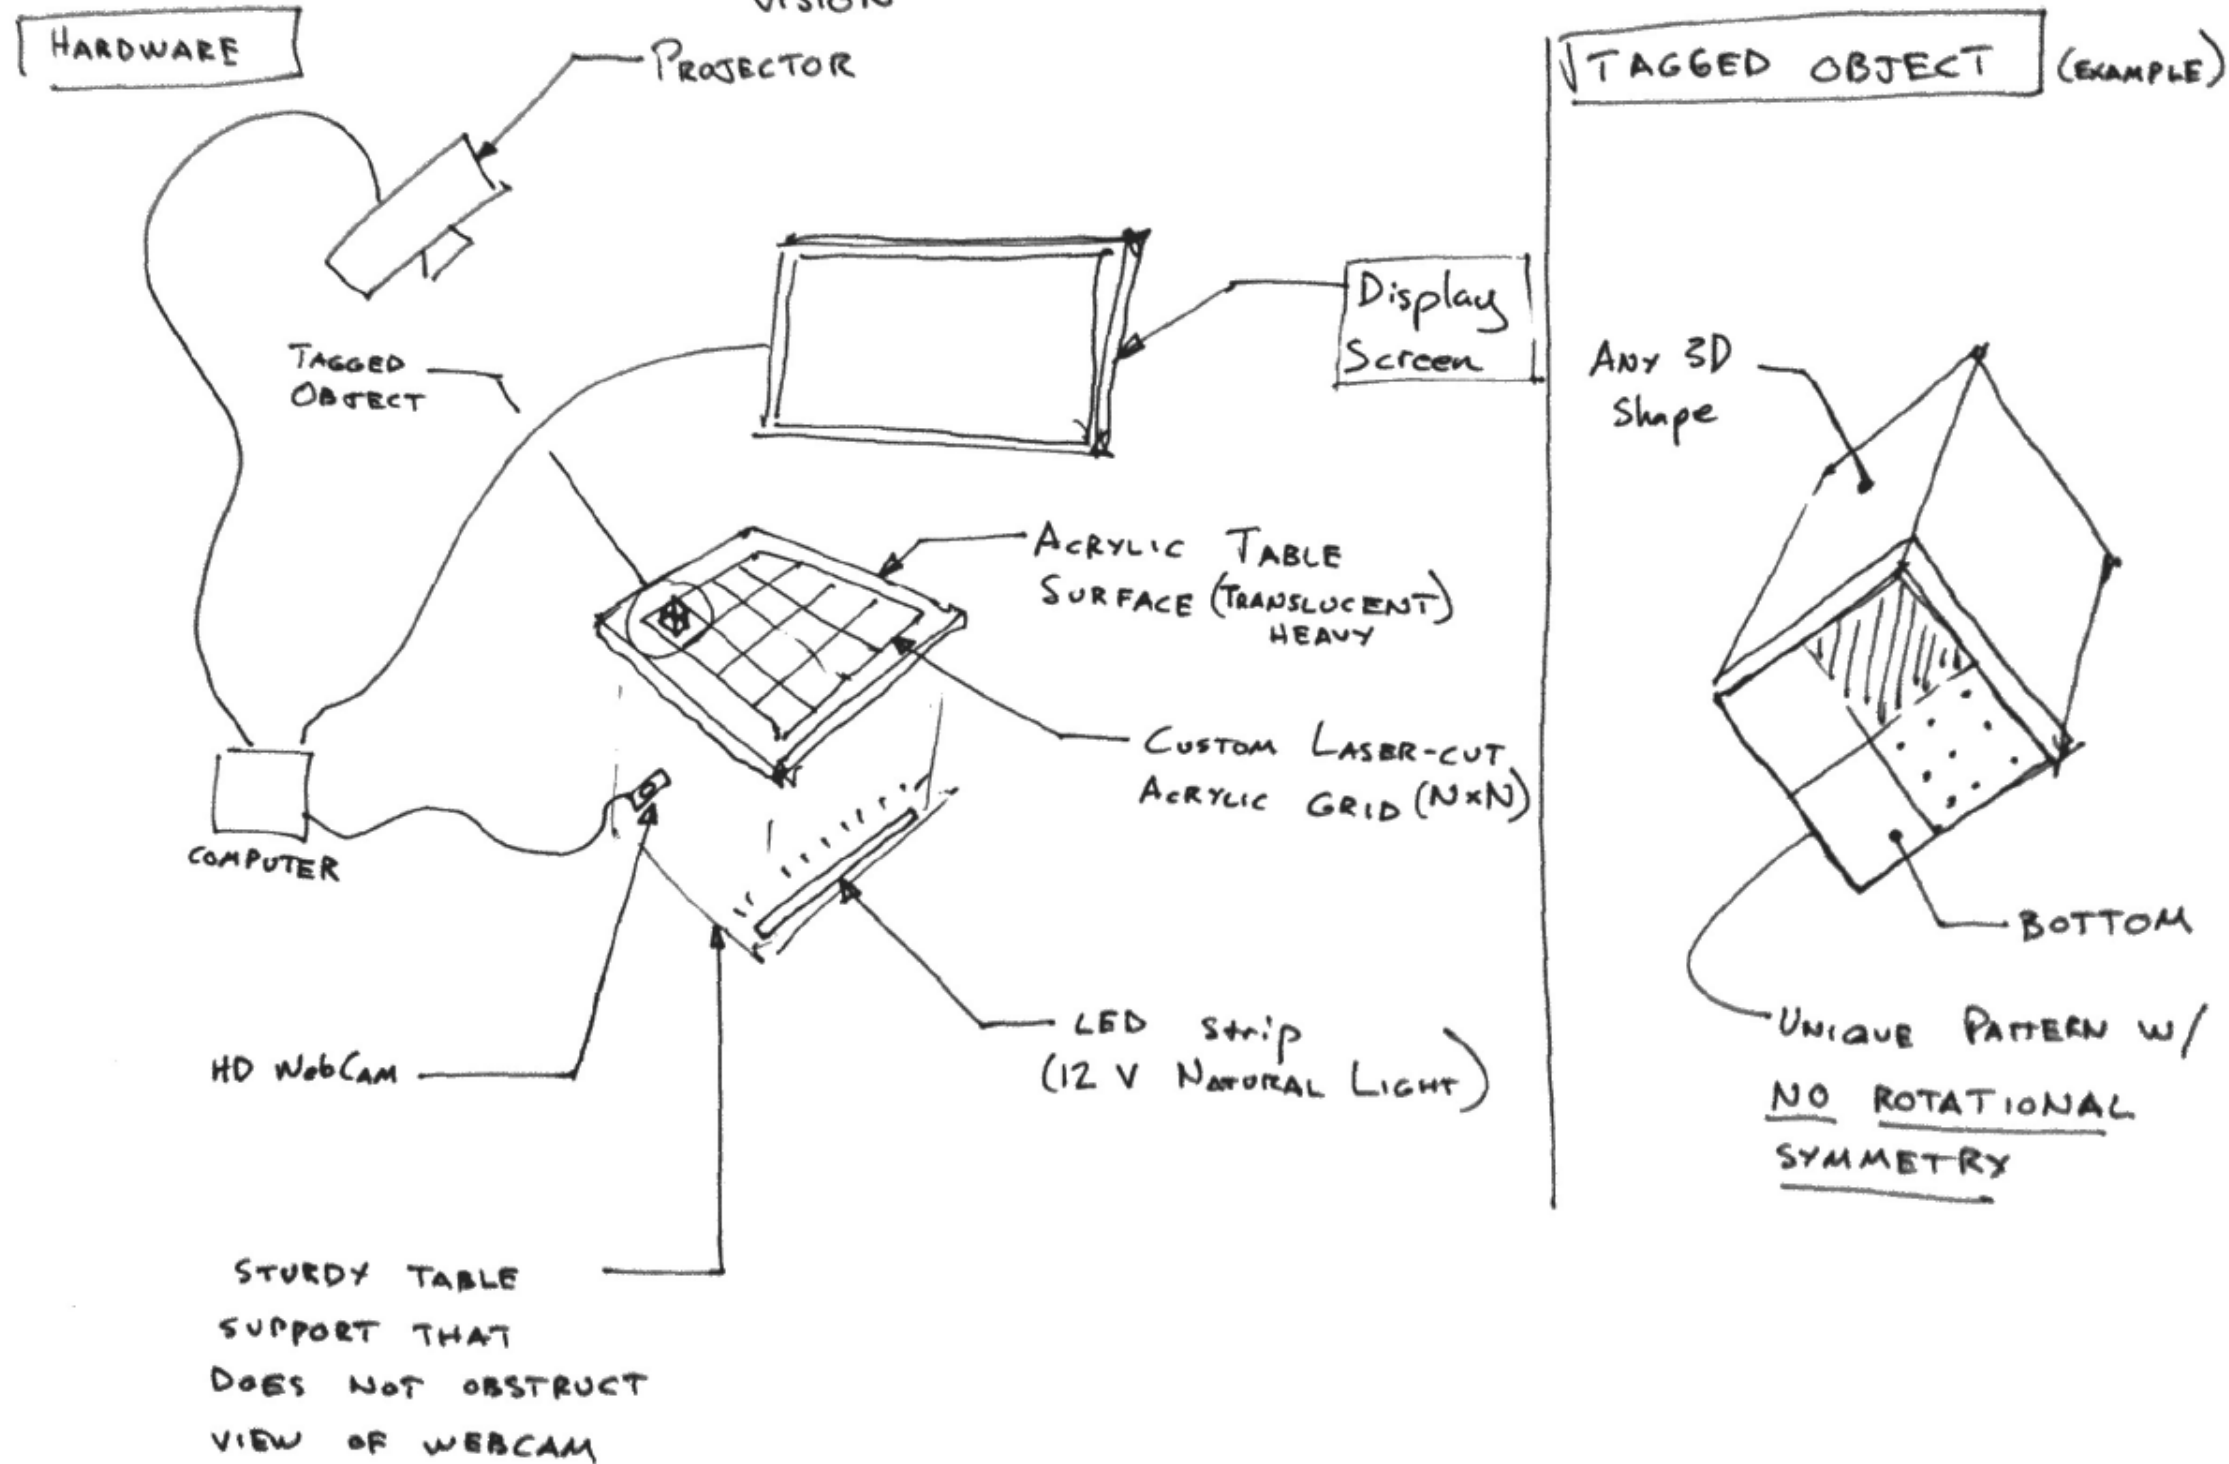 VISION
HARDWARE
PROJECTOR
TAGGED
OBJECT
Display
Screen
ACRYLIC TABLE
SURFACE (TRANSLUCENT)
HEAVY
CUSTOM LASER-CUT
ACRYLIC GRID (N×N)
COMPUTER
LED Strip
(12 V NATURAL LIGHT)
HD WebCAM
STURDY TABLE
SUPPORT THAT
DOES NOT OBSTRUCT
VIEW OF WEBCAM
TAGGED OBJECT (EXAMPLE)
ANY 3D
Shape
BOTTOM
UNIQUE PATTERN W/
NO ROTATIONAL
SYMMETRY